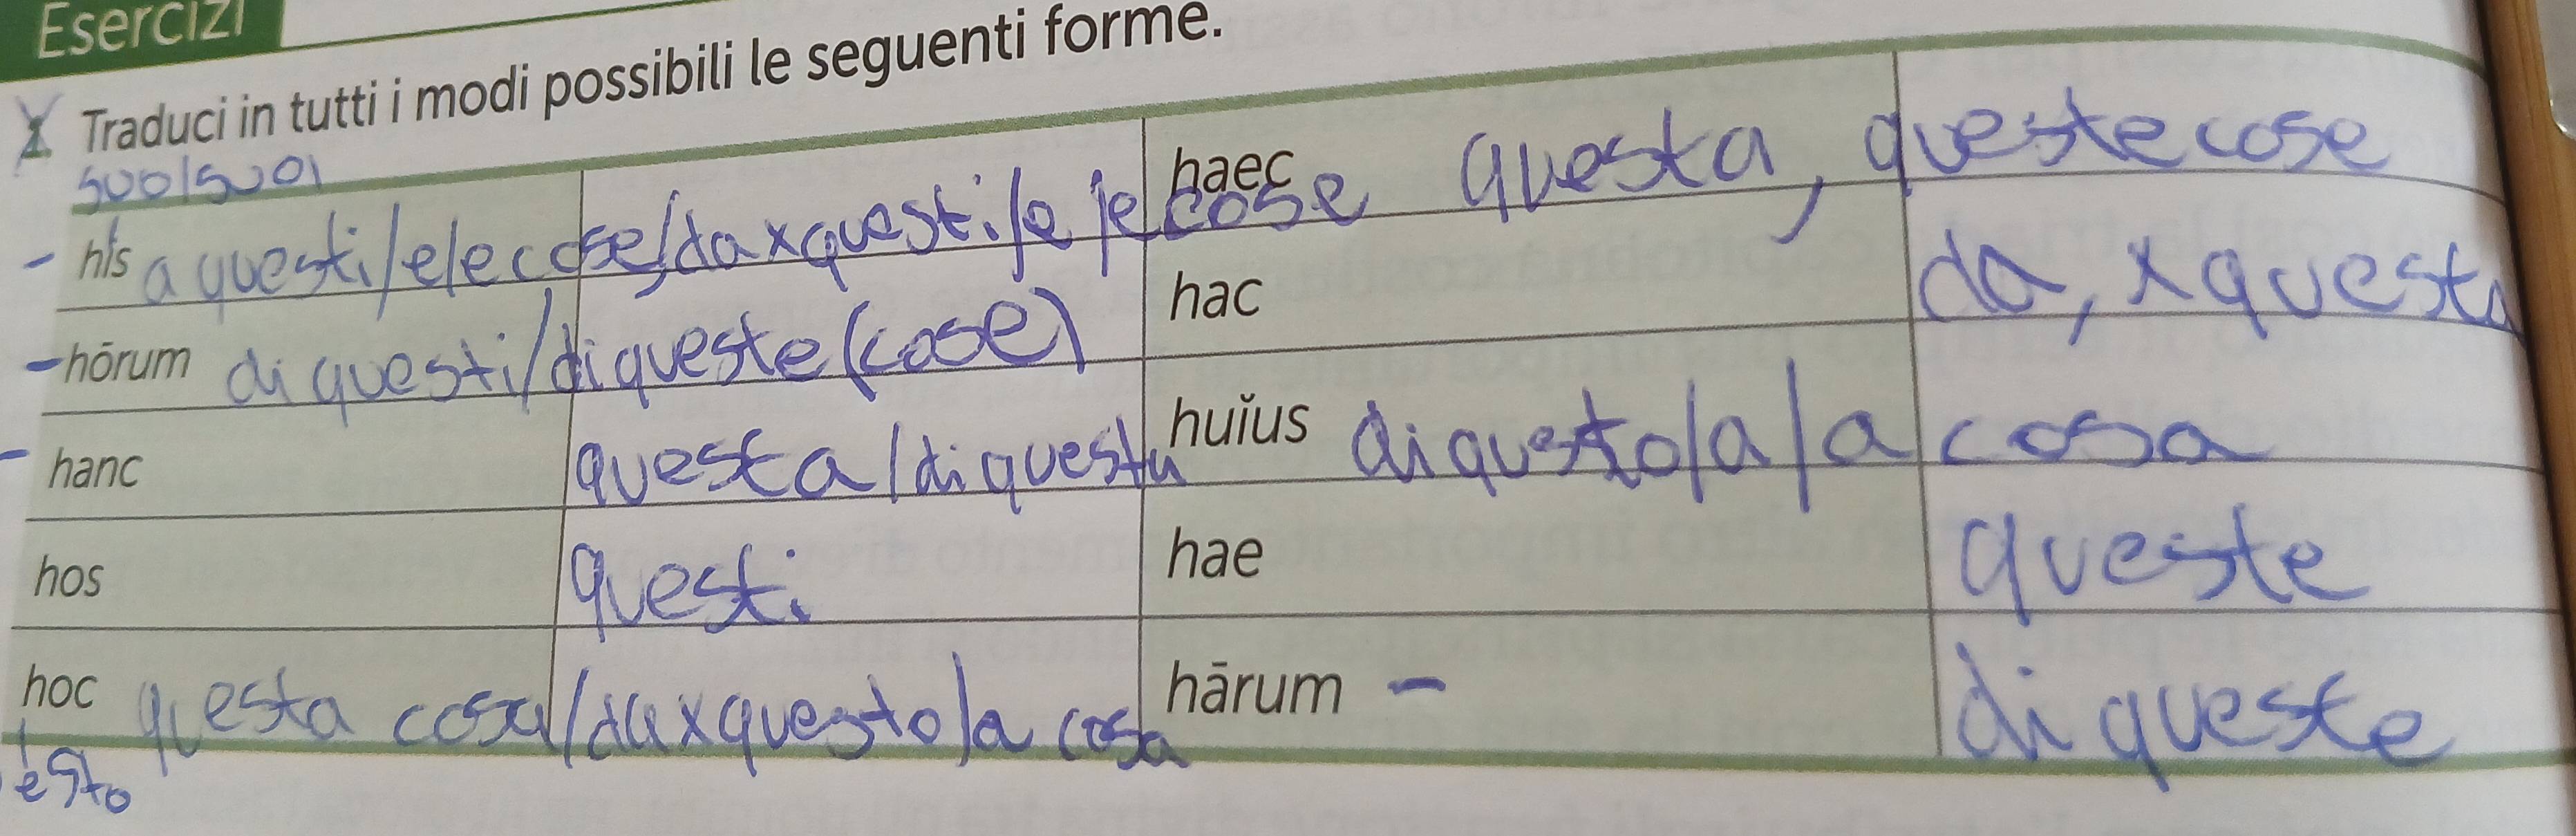 Esercizi
Traduci in tutti i modi possibili le seguenti forme.
suo/suoi
- hīs a questi/e/e cose/da x questi/e/e cose
haec questa, queste cose
- hōrum di questi/di queste (cose)
hac da, x questa
- hanc questa/di questa
huĭus di questo/a/a cosa
hos questi
hae queste
hoc questa cosa/da x questo/a cosa
hārum - di queste
esto